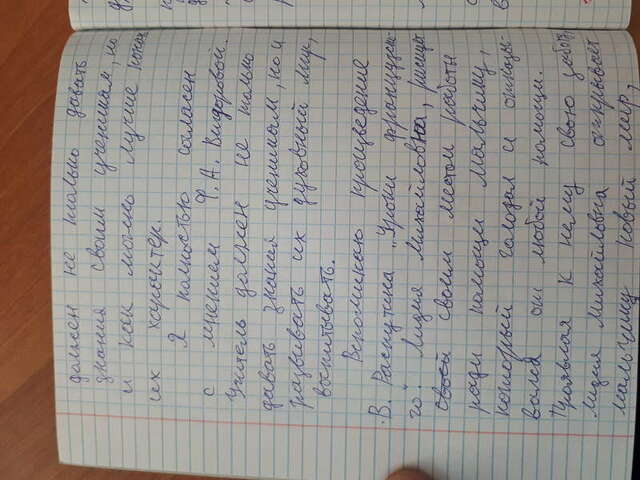 должен не только давать
знания своим ученикам, но
и как можно лучше
их характер.
Я полностью согласен
с мнением Ф. А. Вигдоровой.
Учитель должен не только
давать знания ученикам, но и
развивать их духовный мир,
воспитывать.
Вспоминаю произведение
В. Распутина „Уроки французско-
го". Лидия Михайловна, рискует
своей своим местом работы
ради помощи мальчику,
который голодал и отказы-
вался от любой помощи.
Проявляя к нему свою заботу,
Лидия Михайловна открывает
мальчику новый мир,